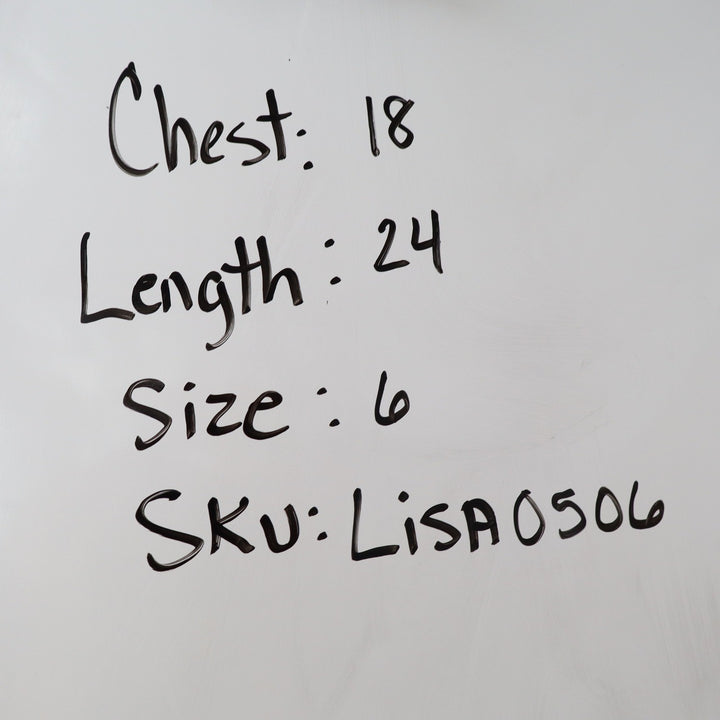 Chest: 18
Length: 24
Size: 6
SKU: LiSA0506